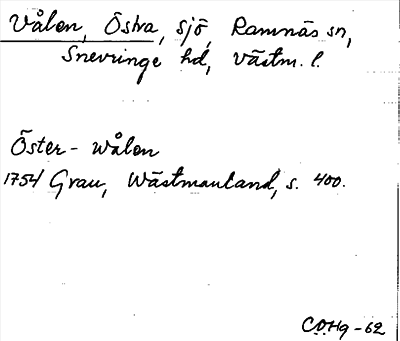 Vålen, Östra, sjö, Ramnäs sn,
Snevringe hd, Västm. l.
Öster-Wålen
1754 Grau, Wästmanland, s. 400.
COHg-62